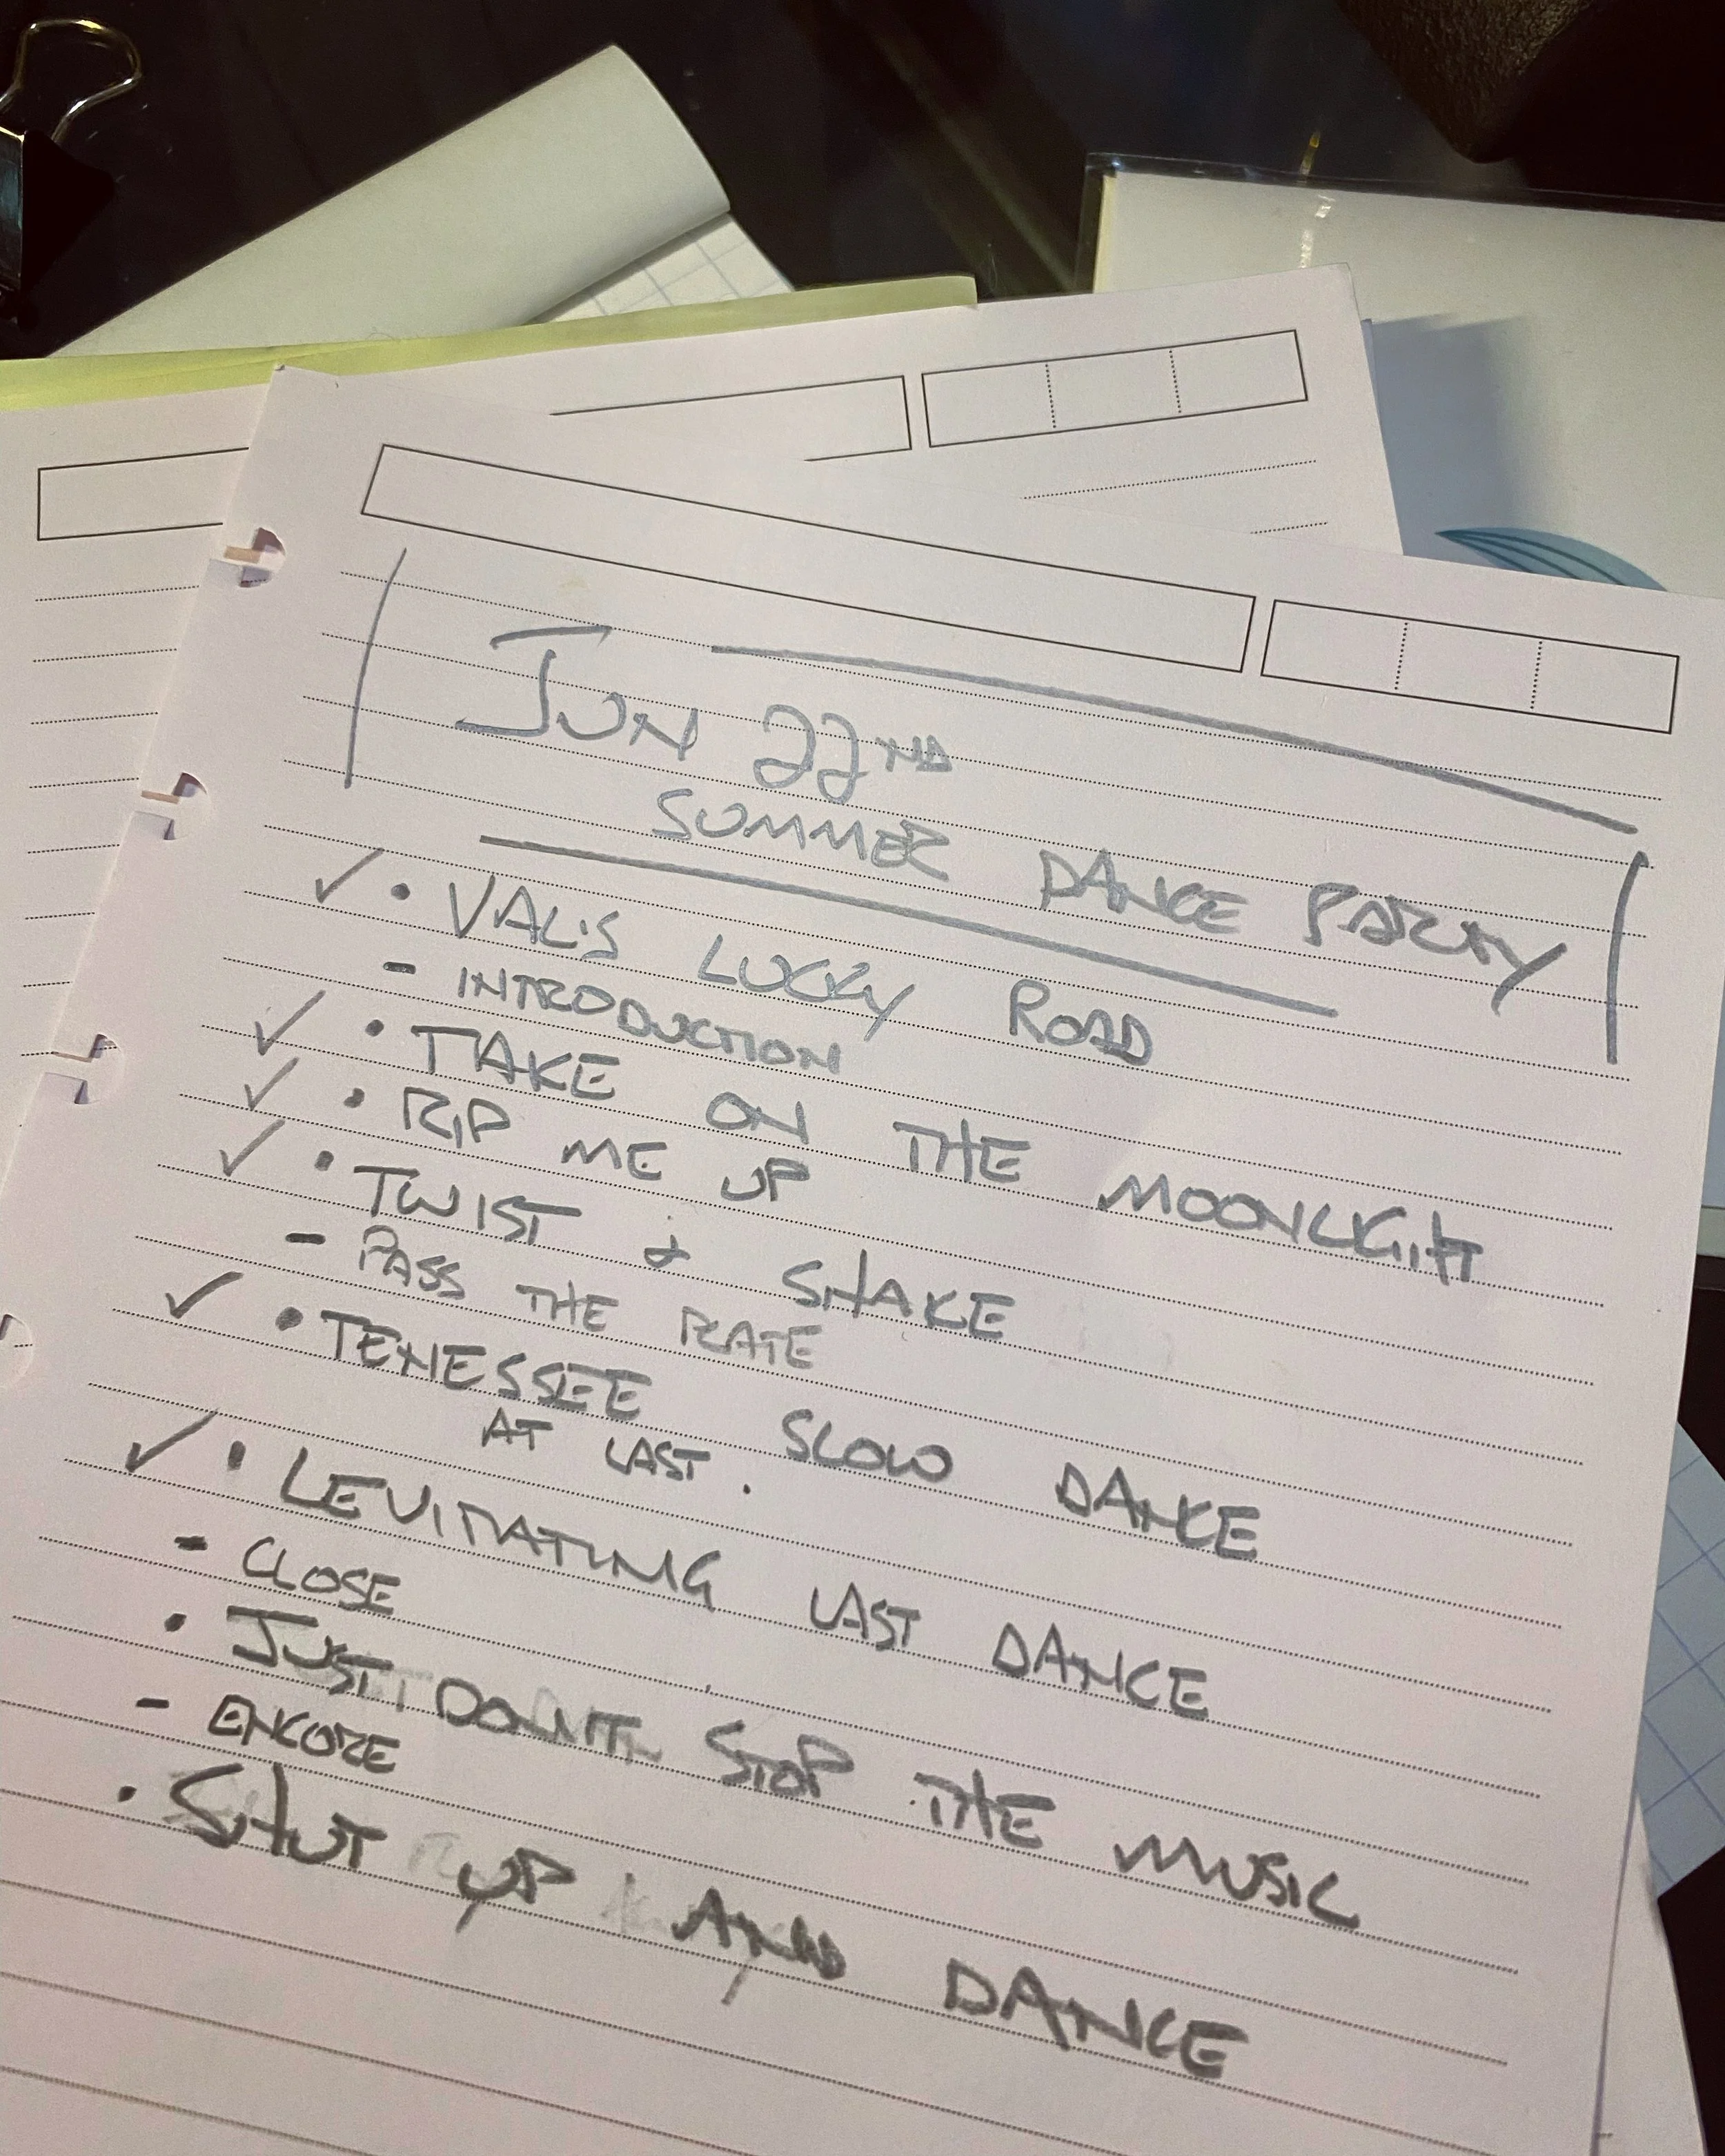 JUN 22ND
SUMMER DANCE PARTY
✓ • VAL'S LUCKY ROAD
- INTRODUCTION
✓ • TAKE ON THE MOONLIGHT
✓ • RIP ME UP
✓ • TWIST & SHAKE
- PASS THE PLATE
✓ • TENESSEE SLOW DANCE
AT LAST.
✓ • LEVITATING LAST DANCE
- CLOSE
• JUST DON'T STOP THE MUSIC
- ENCORE
• SHUT UP AND DANCE